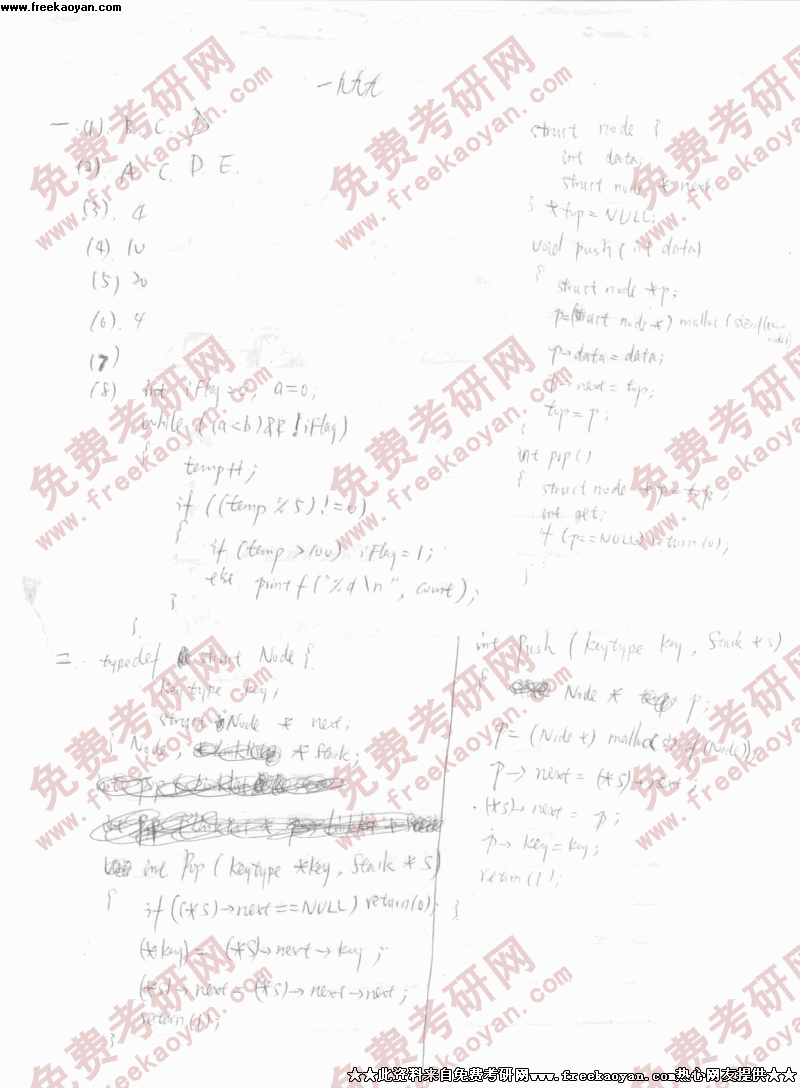 www.freekaoyan.com
一九九九
一.(1) B C. D
(2). A C. D E.
(3). 4
(4). 10
(5) 20
(6). 4
(7)
(8) int iFlag=0, a=0;
while ((a<b)&&!iFlag)
{
temp++;
if ((temp%5)!=0)
{
if (temp>100) iFlag=1;
else printf("%d\n", count);
}
}
struct node {
int data;
struct node * next
} *top=NULL;
void push(int data)
{
struct node *p;
p=(struct node *) malloc(sizeof(struct node));
p→data=data;
p→next=top;
top=p;
}
int pop()
{ struct node *p=top;
int get;
if (p==NULL) return(0);
}
二 typedef struct Node {
keytype key;
struct Node * next;
} Node, *Stack;
int Pop (keytype *key, Stack *S)
{
if ((*S)→next==NULL) return(0);
(*key)= (*S)→next→key;
(*S)→next=(*S)→next→next;
return(1);
}
int Push (keytype key, Stack *S)
{
Node * p;
p=(Node *) malloc(sizeof(Node));
p→next=(*S)→next;
(*S)→next=p;
p→key=key;
return(1);
}
免费考研网
www.freekaoyan.com
★★此资料来自免费考研网www.freekaoyan.com热心网友提供★★